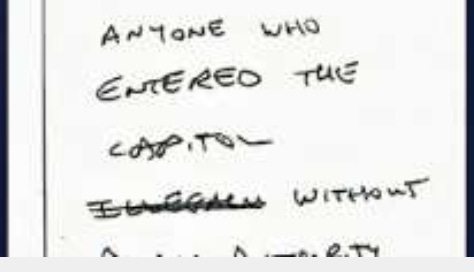 ANYONE WHO
ENTERED THE
CAPITOL
ILLEGALLY WITHOUT
AUTHORITY